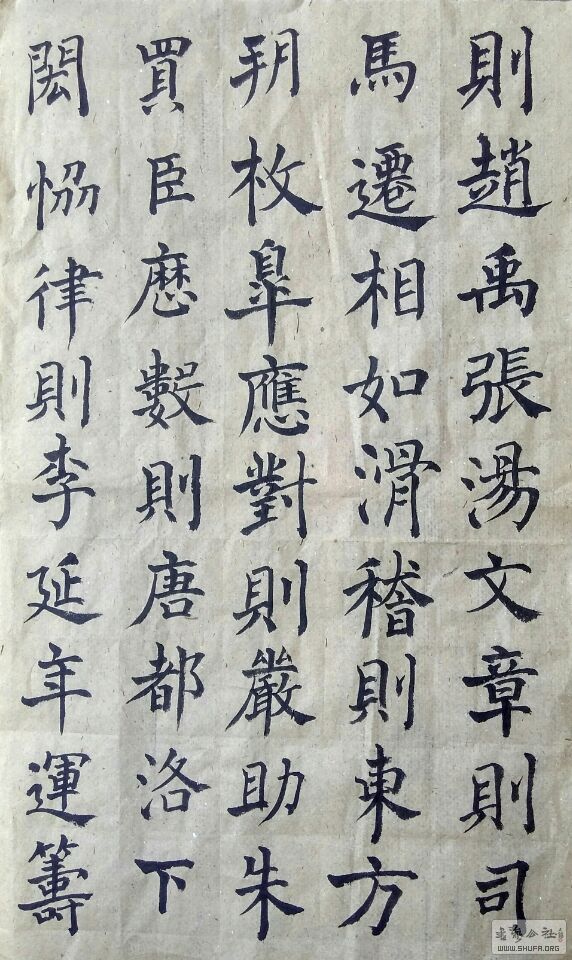 則趙禹張湯文章則司
馬遷相如滑稽則東方
朔枚臯應對則嚴助朱
買臣厯數則唐都洛下
閎恊律則李延年運籌
WWW.SHUFA.ORG